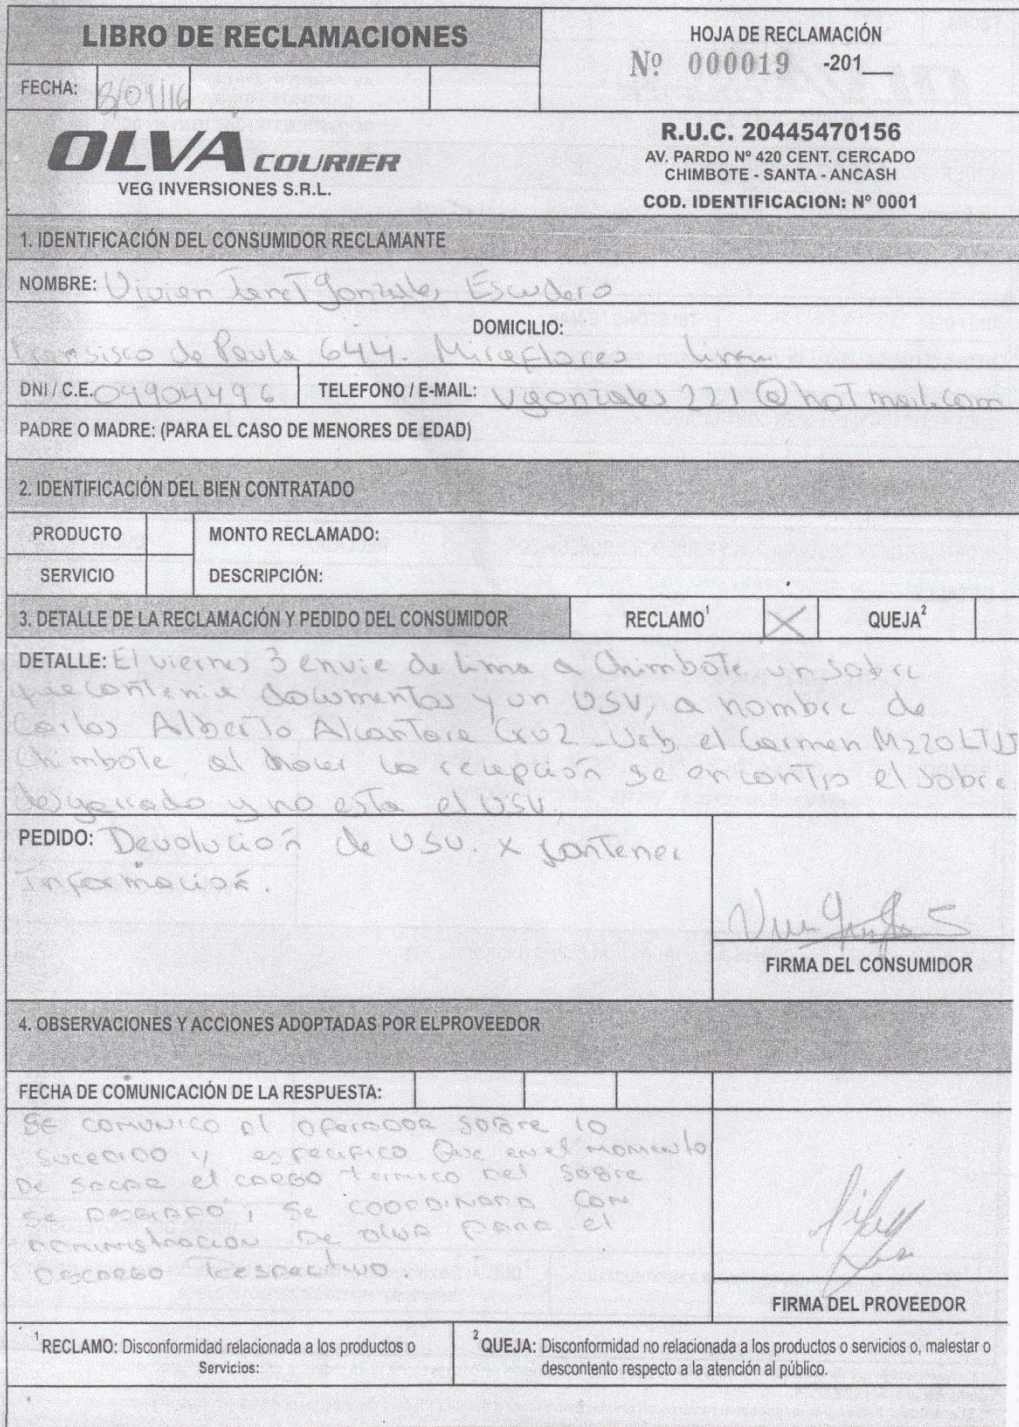 LIBRO DE RECLAMACIONES
HOJA DE RECLAMACIÓN
Nº 000019 -201__
FECHA: 8/09/16
OLVA COURIER
VEG INVERSIONES S.R.L.
R.U.C. 20445470156
AV. PARDO Nº 420 CENT. CERCADO
CHIMBOTE - SANTA - ANCASH
COD. IDENTIFICACION: Nº 0001
1. IDENTIFICACIÓN DEL CONSUMIDOR RECLAMANTE
NOMBRE: Vivien Janet Gonzales Escudero
DOMICILIO:
Fransisco de Paula 644. Miraflores Lima
DNI / C.E. 09904496 TELEFONO / E-MAIL: Vgonzales221@hotmail.com
PADRE O MADRE: (PARA EL CASO DE MENORES DE EDAD)
2. IDENTIFICACIÓN DEL BIEN CONTRATADO
PRODUCTO MONTO RECLAMADO:
SERVICIO DESCRIPCIÓN:
3. DETALLE DE LA RECLAMACIÓN Y PEDIDO DEL CONSUMIDOR RECLAMO¹ X QUEJA²
DETALLE: El viernes 3 envie de Lima a Chimbote, un sobre
que contenia documentos y un USV, a nombre de
Carlos Alberto Alcantara Cruz - Urb. el Carmen Mz20 LT15
Chimbote, al hacer la recepción se encontro el sobre
desgarrado y no esta el USV.
PEDIDO: Devolución de USV. x contener
Información.
FIRMA DEL CONSUMIDOR
4. OBSERVACIONES Y ACCIONES ADOPTADAS POR ELPROVEEDOR
FECHA DE COMUNICACIÓN DE LA RESPUESTA:
SE COMUNICO al OPERADOR SOBRE lo
SUCEDIDO Y especifico Que en el momento
DE SACAR el CARGO termico DEL SOBRE
SE DESGARRO, SE COORDINARA CON
ADMINISTRACION DE OLVA PARA el
DESCARGO RESPECTIVO.
FIRMA DEL PROVEEDOR
¹ RECLAMO: Disconformidad relacionada a los productos o
Servicios:
² QUEJA: Disconformidad no relacionada a los productos o servicios o, malestar o
descontento respecto a la atención al público.